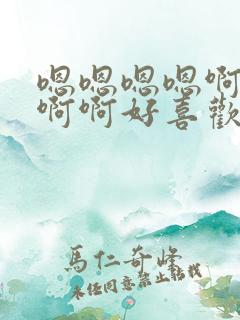 嗯嗯嗯嗯啊
啊啊好喜歡
馬仁奇峰
未經同意禁止轉載